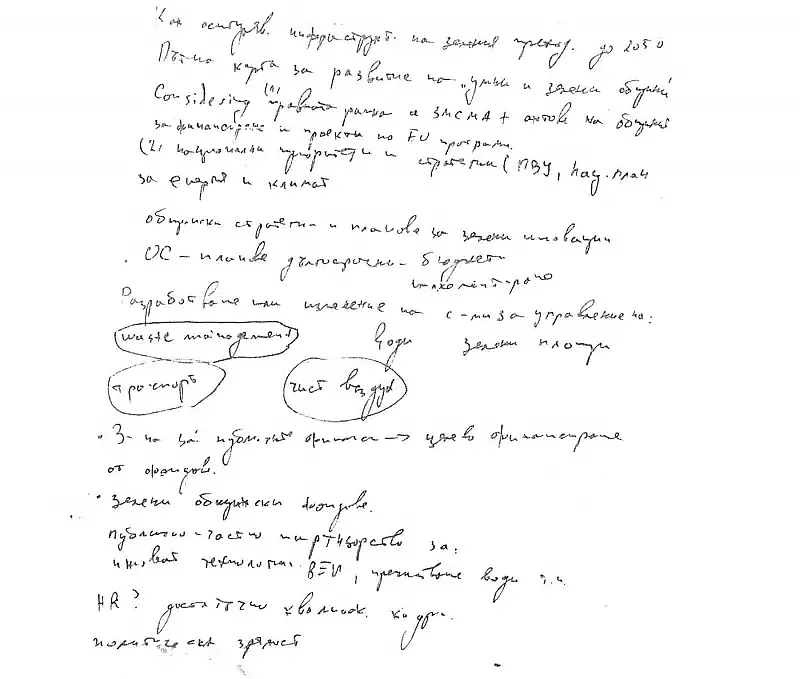 Как осигуряв. инфраструкт. на зеления преход. до 2050
Пътна карта за развитие на "умни и зелени общини"
Considering (1) правната рамка а ЗМСМА + актове на общини
за финансиране и проекти по EU програми.
(2) национални приоритети и стратегии (ПВУ, нац. план
за енергия и климат
общински стратегии и планове за зелени иновации
. ОС – планове дългосрочни – бюджети
Разработване или изменение на с-ми за управление на:
waste management води зелени площи
транспорт чист въздух
• З-на за публичните финанси → целево финансиране
от фондове.
• Зелени общински фондове.
публично-частно партньорство за:
иноват технологии ВЕИ, пречистване води т.н.
HR? достатъчно квалифик. кадри.
политическа зрялост